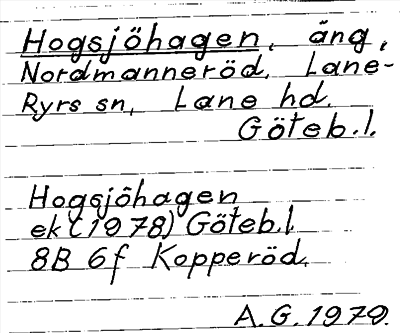 Hogsjöhagen, äng,
Nordmanneröd, Lane-
Ryrs sn, Lane hd.
Göteb.l.
Hogsjöhagen
ek (1978) Göteb.l
8B 6f Kopperöd.
A.G. 1979.